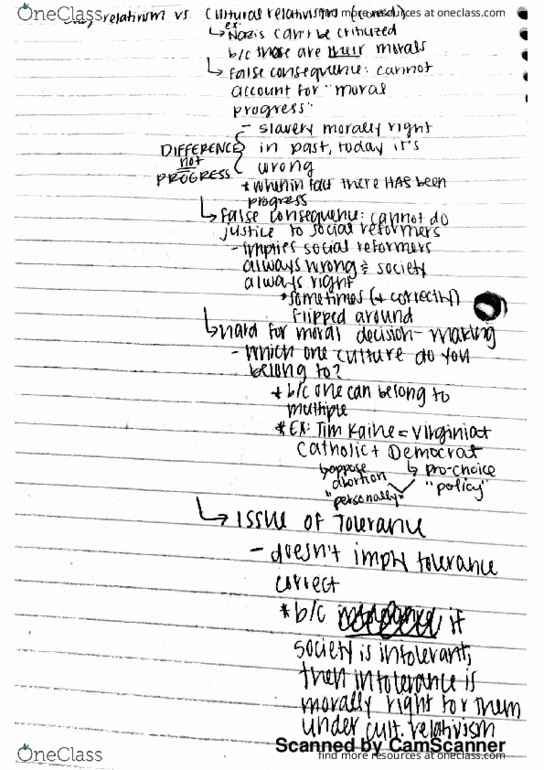 OneClass
find more resources at oneclass.com
relativism vs. cultural relativism
ex:
Nazis can't be critizized
b/c those are their morals
False consequence: cannot
account for "moral
progress"
- slavery morally right
in past, today it's
wrong
DIFFERENCE
not
PROGRESS
* when in fact there HAS been
progress
False consequence: cannot do
justice to social reformers
- implies social reformers
always wrong & society
always right
* sometimes (+ correctly)
flipped around
hard for moral decision-making
- which one culture do you
belong to?
* b/c one can belong to
multiple
* EX: Tim Kaine = Virginia+
Catholic + Democrat
oppose
abortion
"personally"
pro-choice
"policy"
Issue of Tolerance
- doesn't imply tolerance
correct
* b/c if
society is intolerant,
then intolerance is
morally right for them
under cult. relativism
Scanned by CamScanner
OneClass
find more resources at oneclass.com